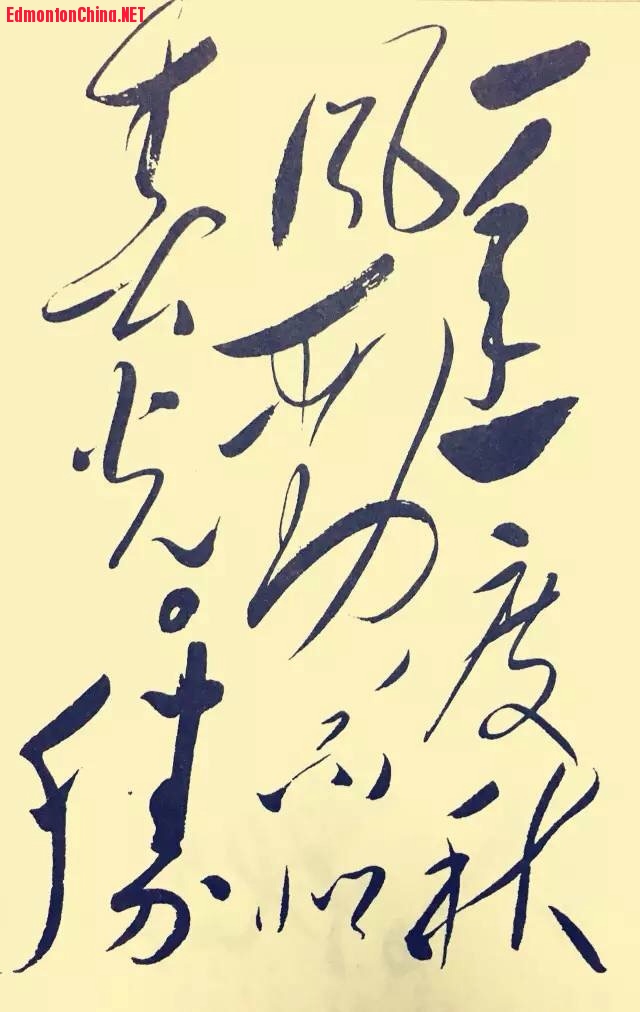 EdmontonChina.NET
一年一度秋
風勁不似
春光。勝